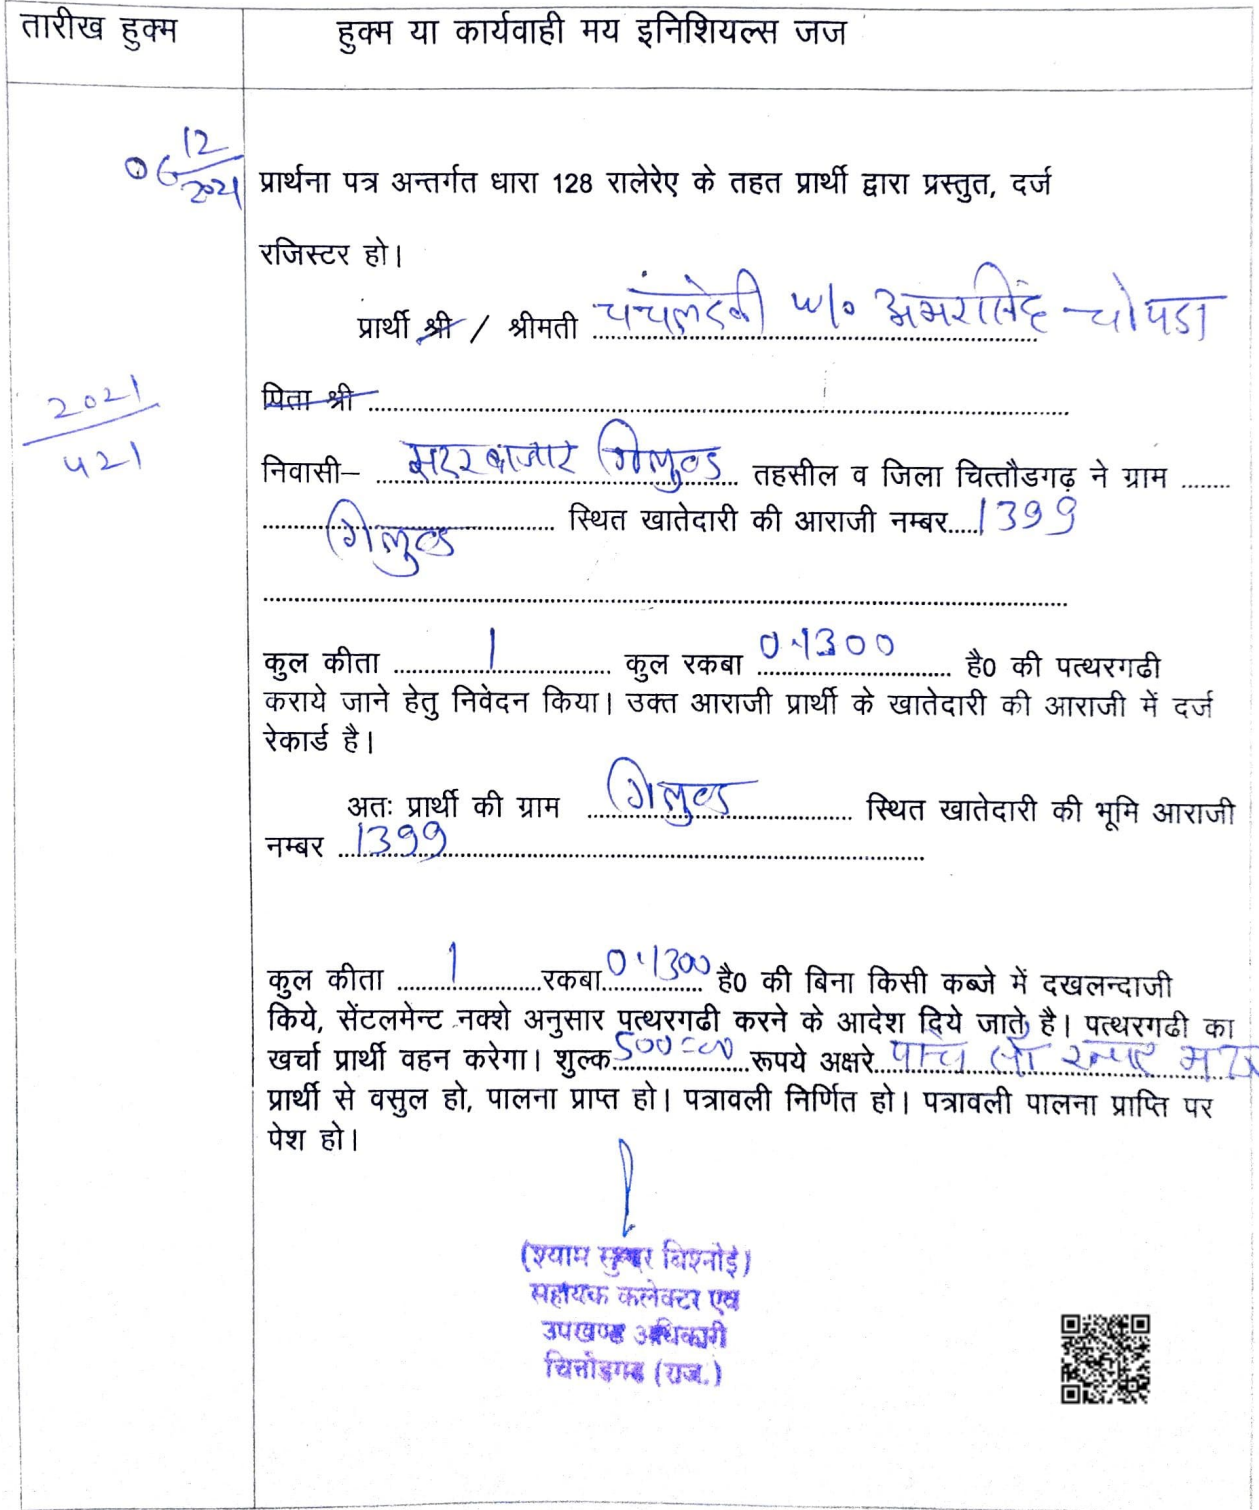 तारीख हुक्म
हुक्म या कार्यवाही मय इनिशियल्स जज
06 12/2021
प्रार्थना पत्र अन्तर्गत धारा 128 रालेरेए के तहत प्रार्थी द्वारा प्रस्तुत, दर्ज
रजिस्टर हो।
प्रार्थी श्री / श्रीमती चंचलदेवी w/o अमरसिंह चोपडा
पिता श्री
2021/421
निवासी– सदर बाजार गिलुण्ड तहसील व जिला चित्तौडगढ़ ने ग्राम
गिलुण्ड स्थित खातेदारी की आराजी नम्बर 1399
कुल कीता 1 कुल रकबा 0.1300 है0 की पत्थरगढी
कराये जाने हेतु निवेदन किया। उक्त आराजी प्रार्थी के खातेदारी की आराजी में दर्ज
रेकार्ड है।
अतः प्रार्थी की ग्राम गिलुण्ड स्थित खातेदारी की भूमि आराजी
नम्बर 1399
कुल कीता 1 रकबा 0.1300 है0 की बिना किसी कब्जे में दखलन्दाजी
किये, सेंटलमेन्ट नक्शे अनुसार पत्थरगढी करने के आदेश दिये जाते है। पत्थरगढी का
खर्चा प्रार्थी वहन करेगा। शुल्क 500=00 रूपये अक्षरे पांच सौ रूपए मात्र
प्रार्थी से वसुल हो, पालना प्राप्त हो। पत्रावली निर्णित हो। पत्रावली पालना प्राप्ति पर
पेश हो।
(श्याम सुन्दर बिश्नोई)
सहायक कलेक्टर एवं
उपखण्ड अधिकारी
चित्तोड़गढ (राज.)